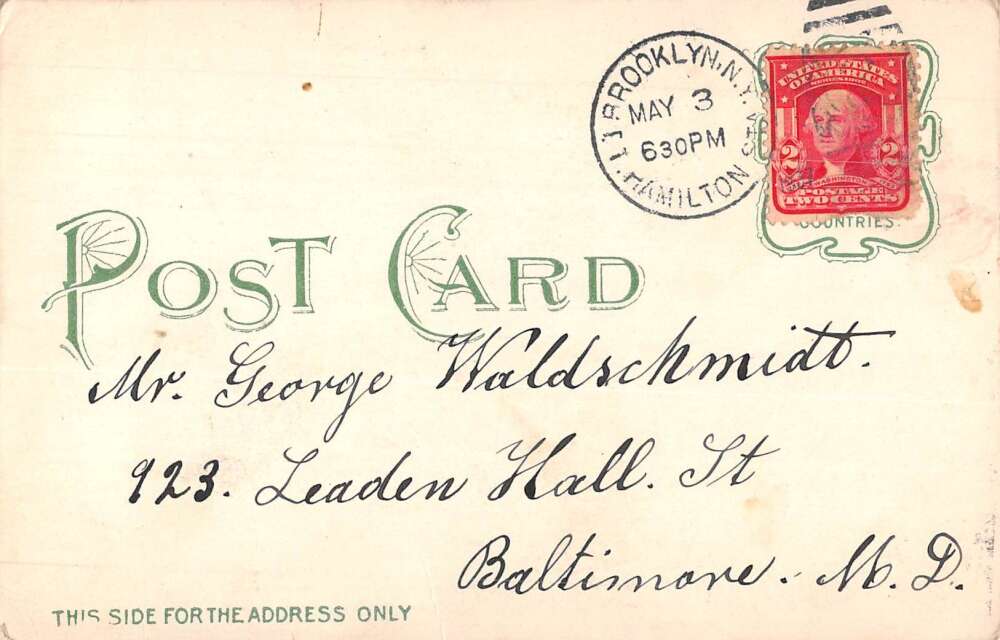 BROOKLYN, N.Y.
MAY 3
630PM
FT. HAMILTON STA.
UNITED STATES
OF AMERICA
SERIES 1902
2 2
WASHINGTON
POSTAGE
TWO CENTS
COUNTRIES.
POST CARD
Mr. George Waldschmidt.
923. Leaden Hall. St
Baltimore. M. D.
THIS SIDE FOR THE ADDRESS ONLY